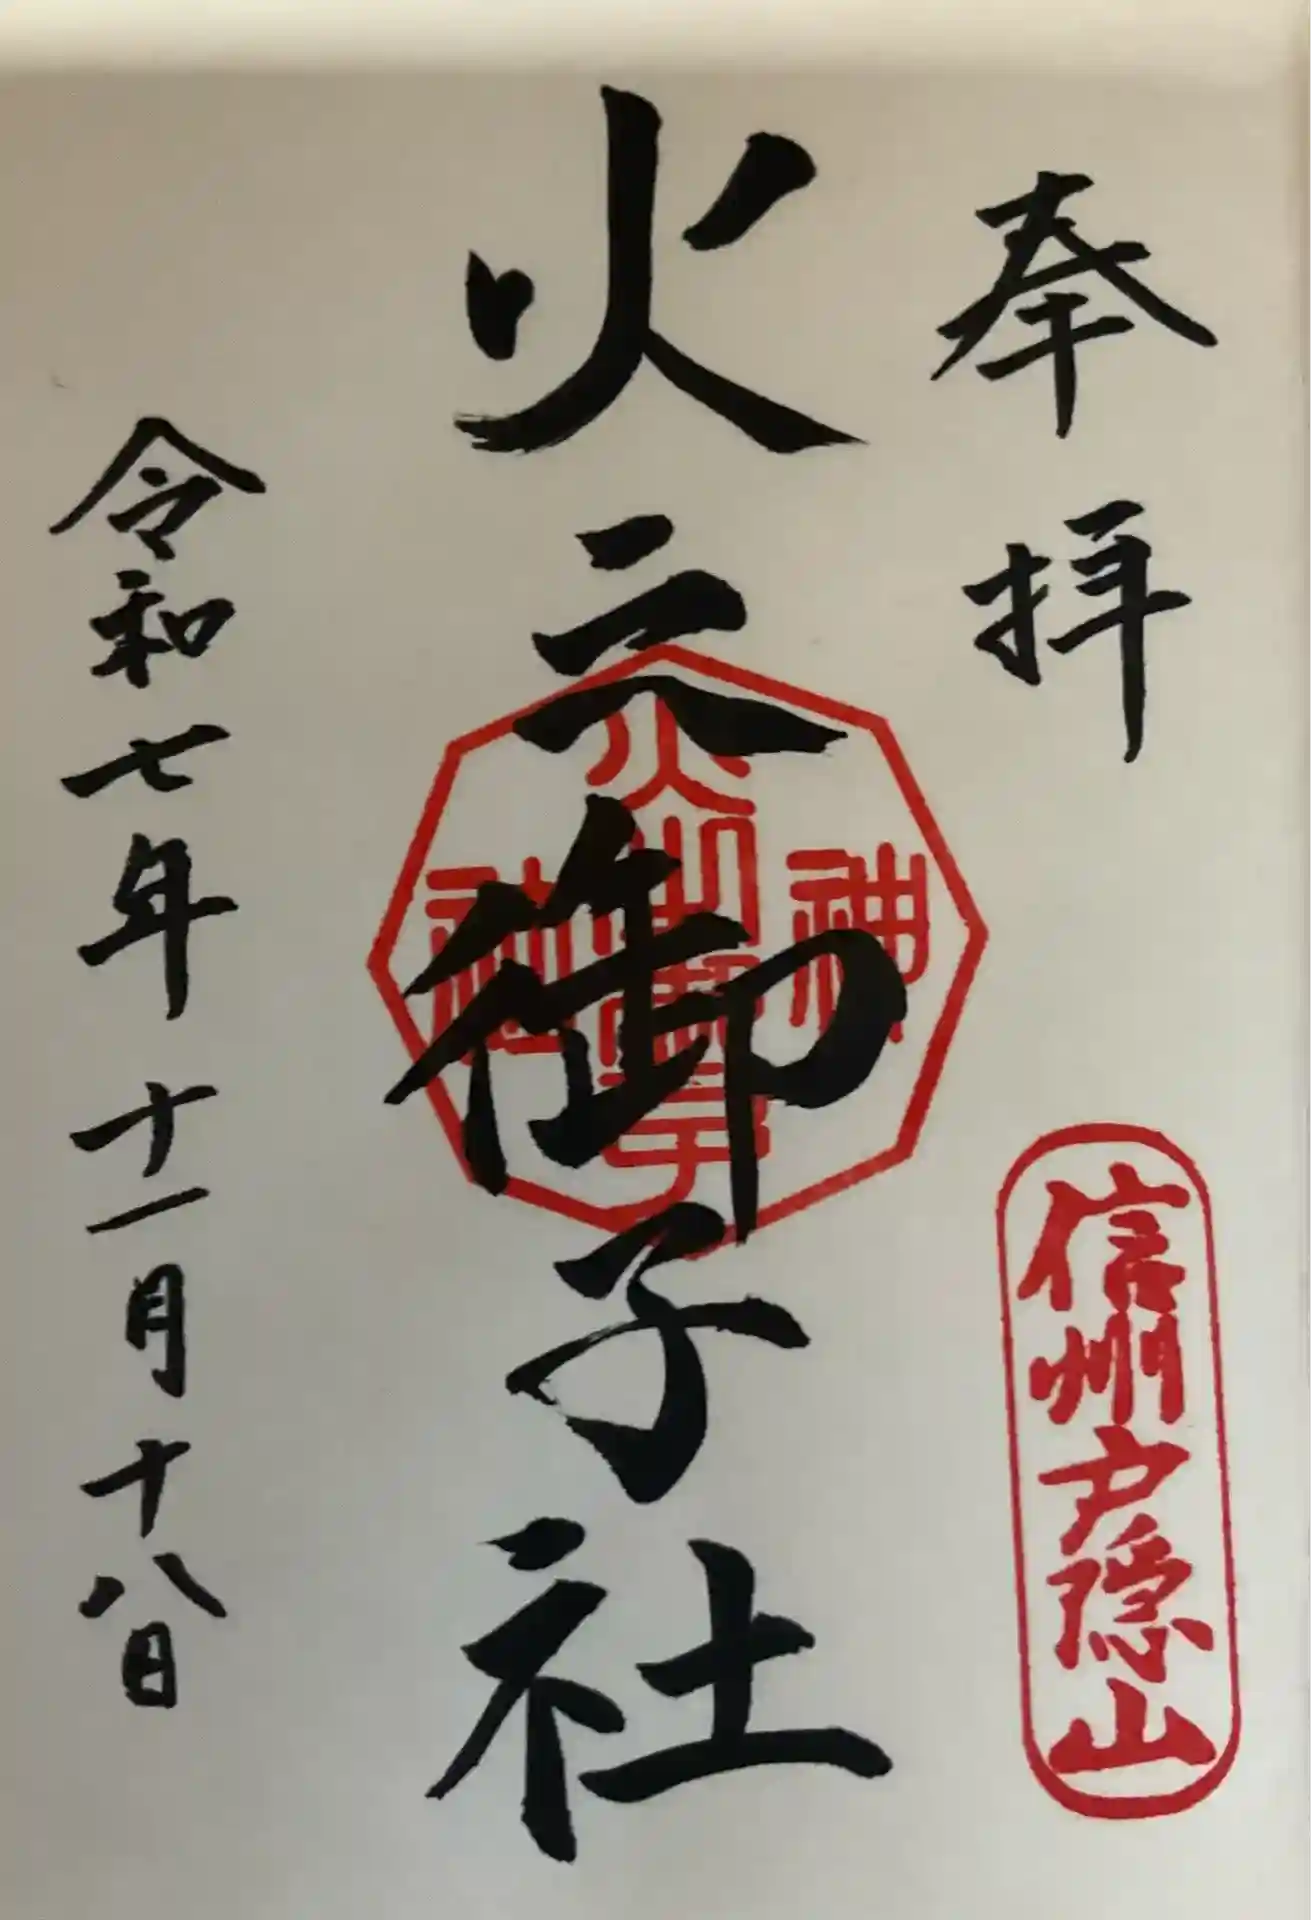 奉拝
信州戸隠山
火之御子社
火之御子
神社
令和七年十一月十八日